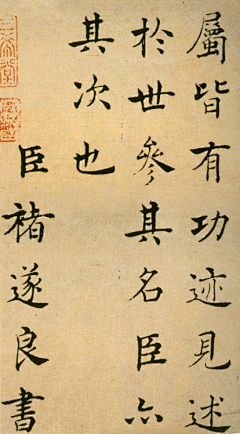 屬皆有功迹見述
於世參其名臣亦
其次也
臣褚遂良書